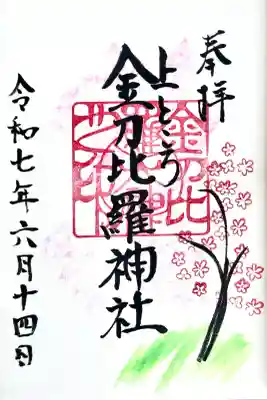 奉拝
金刀比羅神社
令和七年六月十四日